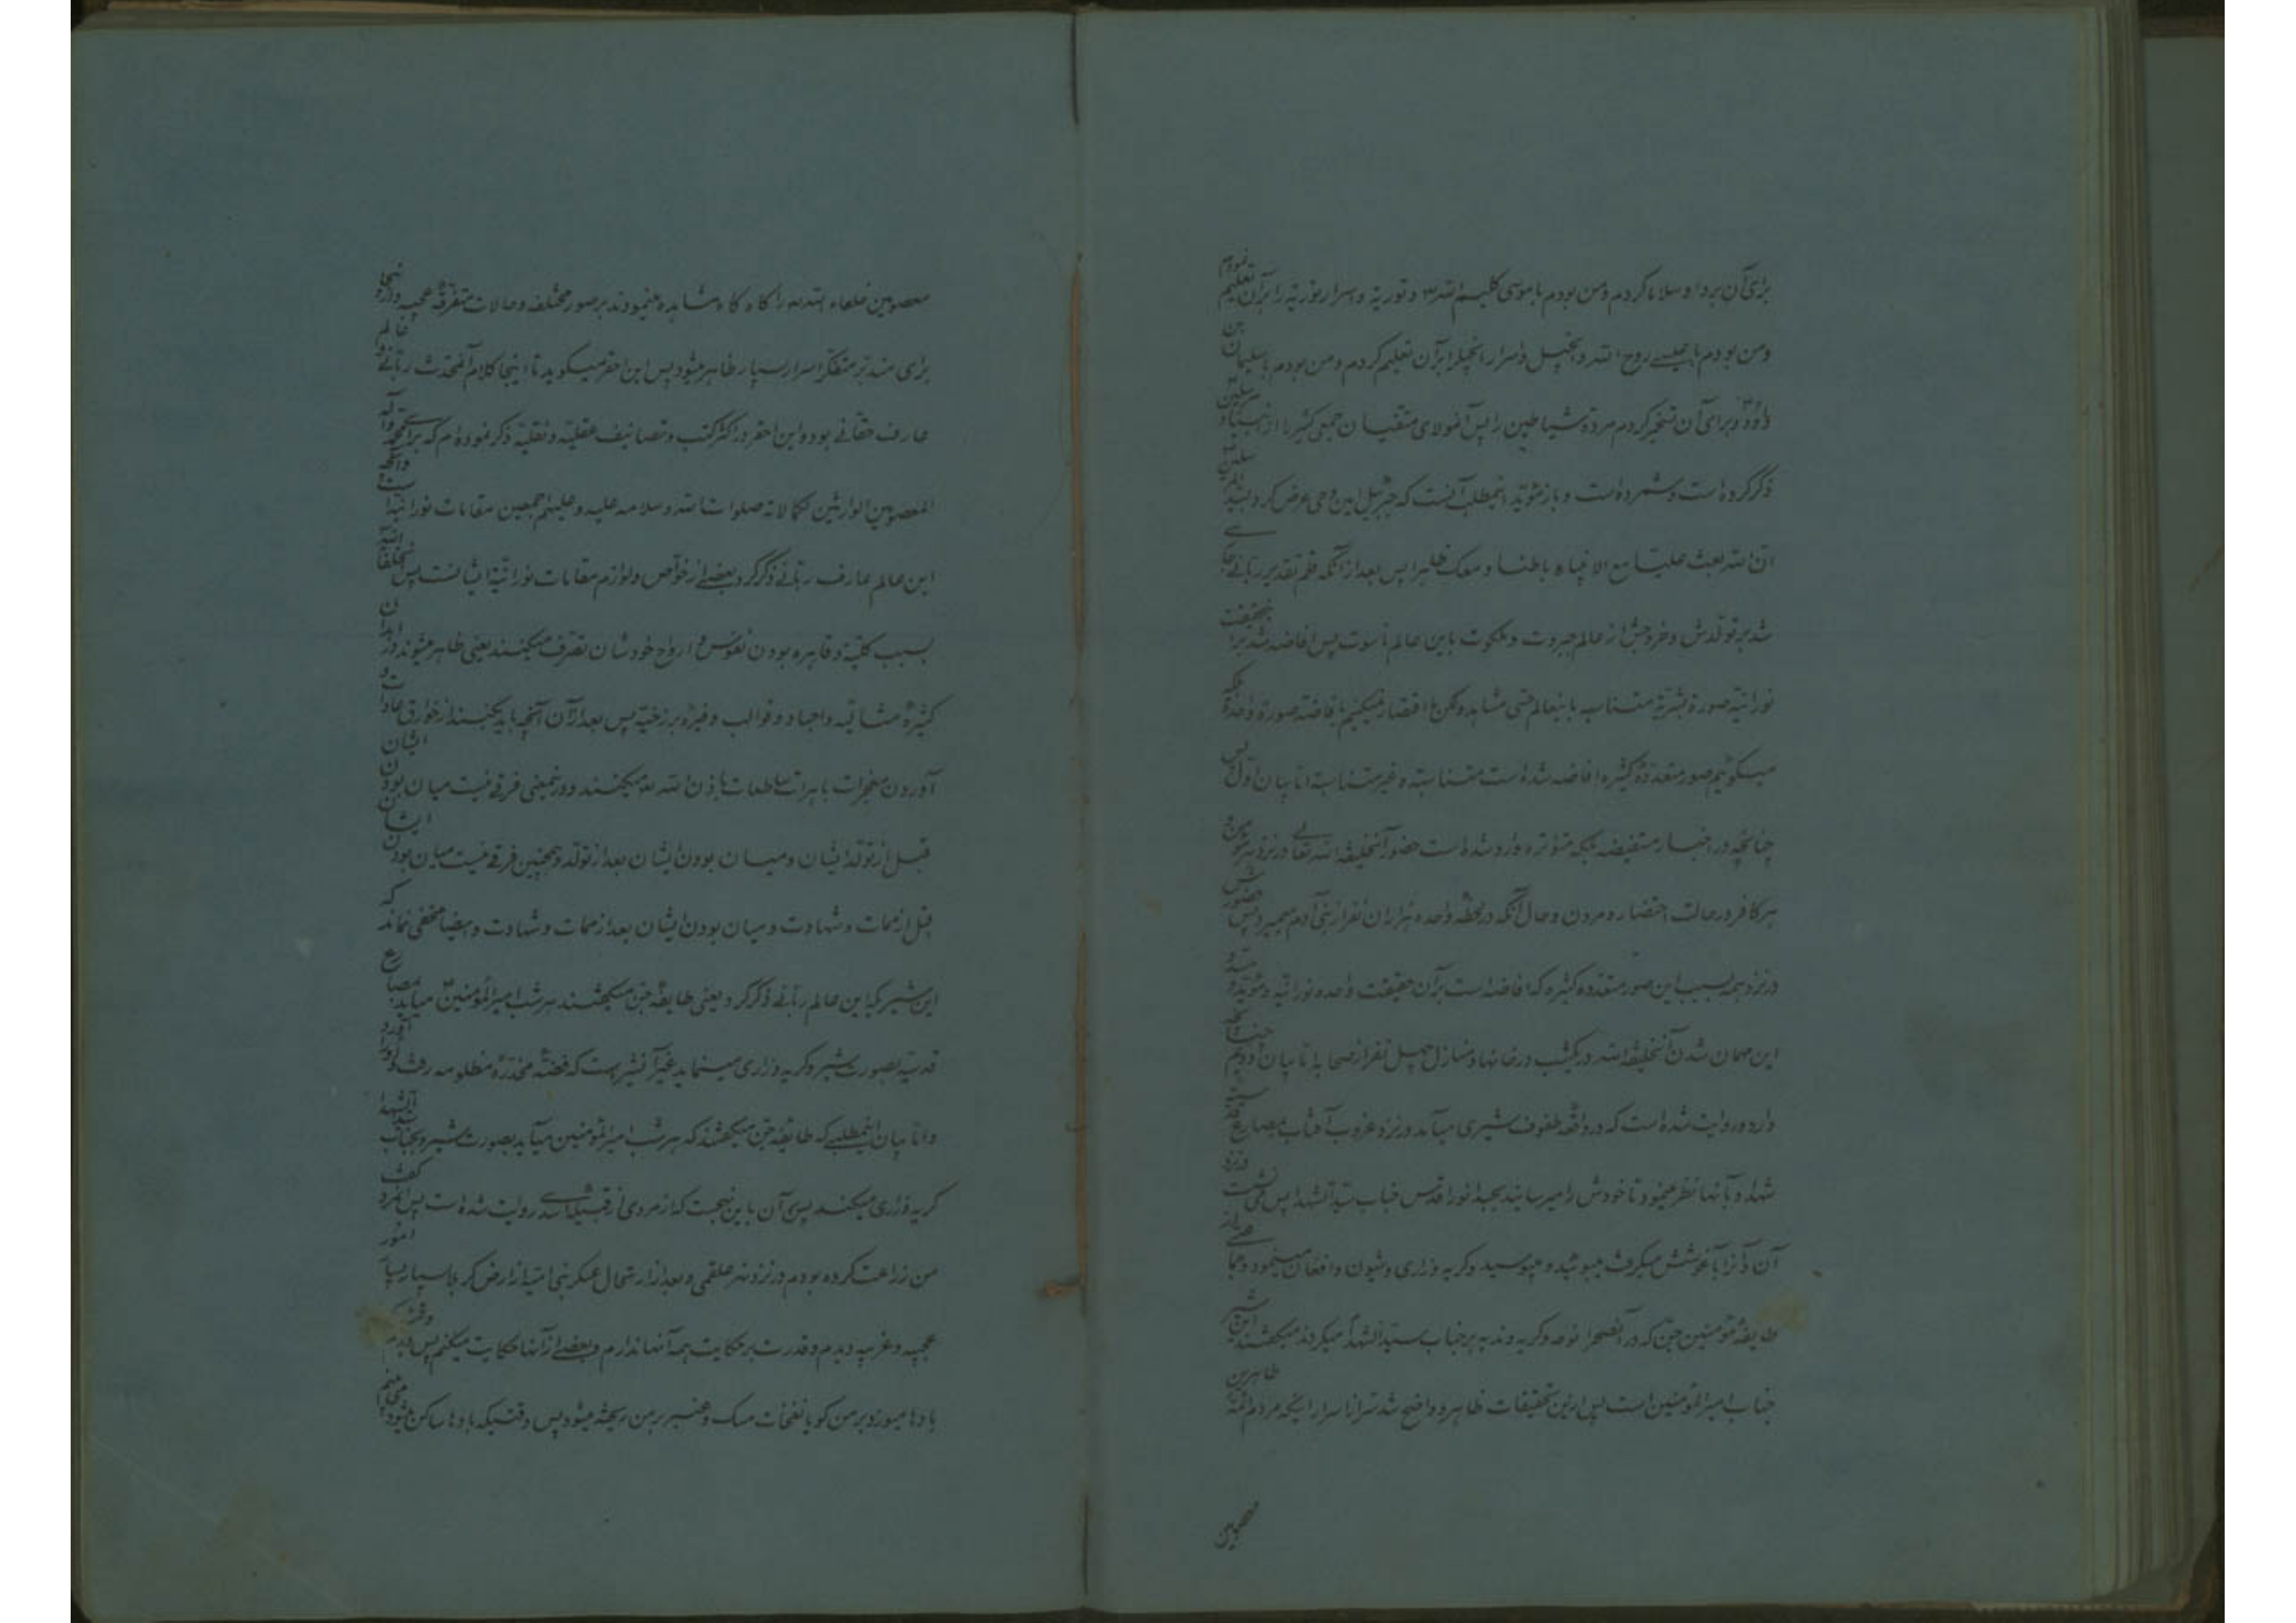 برای آن بردا و سلاما کردم و من بودم با موسی کلیم الله و توریة و اسرار توریة را بر آن تعلیم نمودم
و من بودم با عیسی روح الله و انجیل و اسرار انجیل را بر آن تعلیم کردم و من بودم با سلیمان بن
داود و برای آن تسخیر کردم مردة شیاطین را پس آنمولای متقیان جمعی کثیر را از انبیاء و مرسلین
ذکر کرده است و شمرده است و باز مؤید اینمطلب آنست که جبرئیل امین وحی عرض کرد بسید مرسلین
ان الله بعث علیا مع الانبیاء باطنا و معک ظاهرا پس بعد از آنکه قلم تقدیر ربانی جاری
شد بر تولدش و خروجش از عالم جبروت و ملکوت باین عالم ناسوت پس افاضه شد بر آنحقیقت
نورانیة صورة بشریة متناسب باینعالم حسی مشاهد ولکن ما اقتصار نمیکنیم بافاضه صورة واحدة بلکه
میگوئیم صور متعددة کثیره افاضه شده است متناسبة و غیر متناسبة اما بیان اول پس
چنانچه در اخبار مستفیضه بلکه متواتره وارد شده است حضور آنخلیفة الله تعالی در نزد هر مؤمن و
هر کافر در حالت احتضار و مردن و حال آنکه در لحظه واحده هزاران نفر از بنی آدم میمیرد پس حضورش
در نزد همه بسبب این صور متعدده کثیره که افاضه است بر آن حقیقت واحده نورانیه و مؤید
این مهمان شدن آنخلیفة الله در یکشب در خانها و منازل چهل نفر از صحابه اما بیان دویم
وارد و روایت شده است که در واقعه طفوف شیری میآمد در نزد غروب آفتاب بمصارع
شهداء و بآنها نظر مینمود تا خودش را میرسانید بجسد انور اقدس جناب سید الشهداء پس می نشست در نزد
آن و آنرا بآغوشش میگرفت میبوئید و میبوسید و گریه و زاری و شیون و افغان مینمود و جماعتی از
طایفه مؤمنین جن که در آنصحرا نوحه و گریه و ندبه بر جناب سید الشهداء میکردند میگفتند این شیر
جناب امیر المؤمنین است پس از این تحقیقات ظاهر و واضح شد سر از اسرار اینکه مردم ائمه طاهرین
معصومین
معصومین خلفاء الله را گاه گاه مشاهده مینمودند بر صور مختلفه و حالات متفرقة عجیبه و از اینجا
برای متدبر متفکر اسرار بسیار ظاهر میشود پس این احقر میگوید تا اینجا کلام آنمحدث ربانی و عالم
عارف حقانی بود و این احقر در اکثر کتب و تصانیف عقلیه و نقلیه ذکر نموده ام که برای محمد و آله
المعصومین الوارثین لکمالاته صلوات الله و سلامه علیه و علیهم اجمعین مقامات نورانیه است و آنچه
این عالم عارف ربانی ذکر کرد بعضی از خواص و لوازم مقامات نورانیة ایشانست پس خلفاء الله
بسبب کلیة و قاهره بودن نفوس و ارواح خودشان تصرف میکنند یعنی ظاهر میشوند در ابدان
کثیرة مثالیه و اجساد و قوالب و غیره برزخیه پس بعد از آن آنچه باید بکنند از خوارق عادات و
آوردن معجزات باهرات ساطعات باذن الله میکنند و در اینمعنی فرقی نیست میان بودن ایشان
قبل از تولد ایشان و میان بودن ایشان بعد از تولد و همچنین فرقی نیست میان بودن ایشان
قبل از ممات و شهادت و میان بودن ایشان بعد از ممات و شهادت و ایضا مخفی نماند که
این شیر که این عالم ربانی ذکر کرد یعنی طایفه جن میگفتند هر شب امیر المؤمنین میآید بمصارع
قدسیه بصورت شیر و گریه و زاری مینماید غیر آن شیر است که فضه مخدره مظلومه رفت او را آورد
و اما بیان اینمطلب که طایفه جن میگفتند که هر شب امیر المؤمنین میآید بصورت شیر و بجناب سید الشهداء
گریه و زاری میکند پس آن باین نهج است که از مردی از قبیله اسد روایت شده است پس آنمرد گفت
من زراعت کرده بودم در نزد نهر علقمی و بعد از ارتحال عسکر بنی امیة از ارض کربلا بسیار بسیار امور
عجیبه و غریبه دیدم و قدرت بر حکایت همه آنها ندارم و بعضی از آنها حکایت میکنم پس دیدم
بادها میوزد بر من گویا نفخات مسک و عنبر بر من ریخته میشود پس وقتیکه بادها ساکن میشود